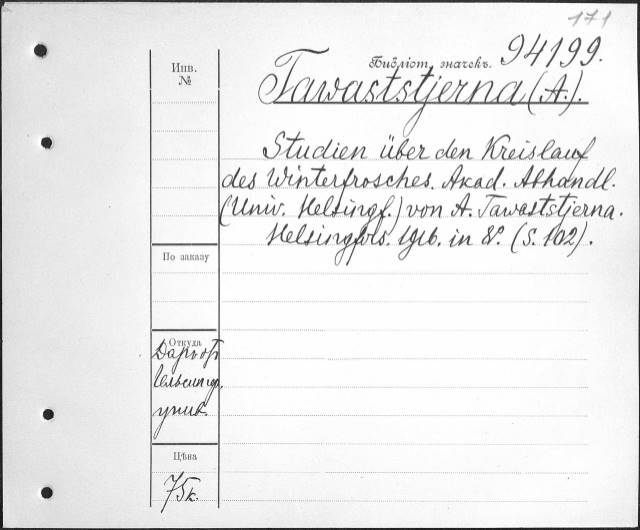 171
Инв. №
Библіот. значекъ. 94199.
Tawaststjerna (A.).
Studien über den Kreislauf
des Winterfrosches. Akad. Abhandl.
(Univ. Helsingf.) von A. Tawaststjerna.
Helsingfors. 1916. in 8°. (S. 102).
По заказу
Откуда
Даръ отъ
Гельсингф.
унив.
Цѣна
75к.